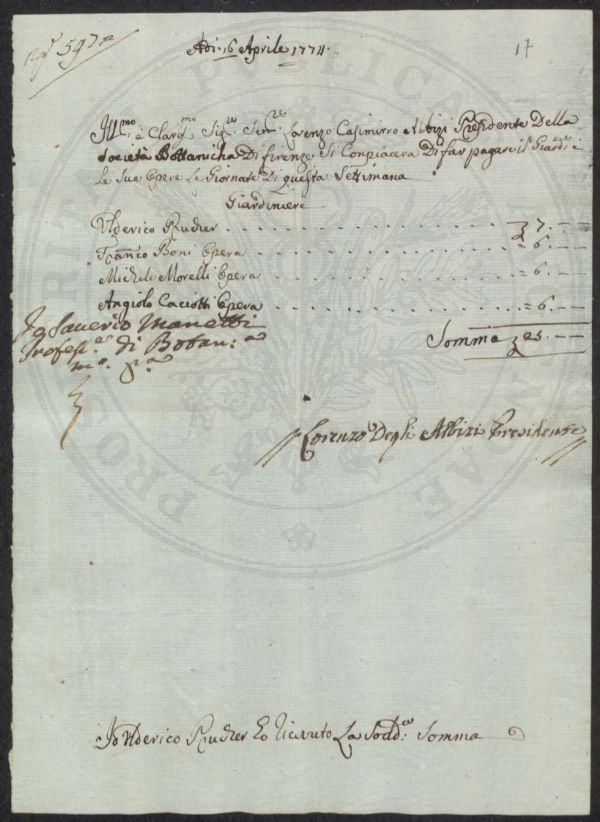 597
Adi: 16 Aprile 1774.
17
Ill.mo e Claris.mo Sig.re Sen.re Lorenzo Casimirro Albizi Presidente Della
Società Bottanicha Di firenze Si Conpiacera Di far pagare il Giard.e e
Le Sue Opere Le Giornate Di questa Settimana
Giardiniere
Ulderico Rudier . . . . . . . . . . . . . . . 7. — —
Franco Boni Opera . . . . . . . . . . . . . = 6. — —
Michele Morelli Opera . . . . . . . . . . . = 6. — —
Angiolo Caciotti Opera . . . . . . . . . . . = 6. — —
Somma 25. — —
Io Saverio Manetti
Profess.e di Botan:a
m.o p.a
Lorenzo Degli Albizi Presidente
Io Ulderico Rudier Ho Ricevuto La Sodd:a Somma
PROSPERITATI PUBLICAE